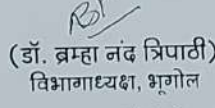 (डॉ. ब्रम्हा नंद त्रिपाठी)
विभागाध्यक्ष, भूगोल